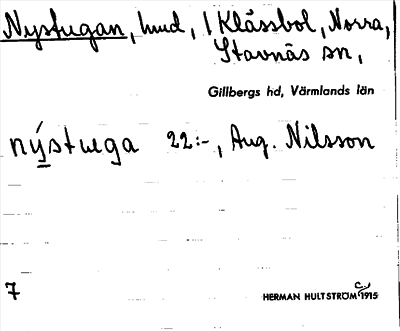 Nystugan, hmd, / Klässbol, Norra,
Stavnäs sn,
Gillbergs hd, Värmlands län
nýstuga 22:-, Aug. Nilsson
7
HERMAN HULTSTRÖM c/1915